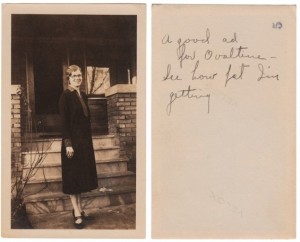 A good ad
for Ovaltine –
See how fat I'm
getting